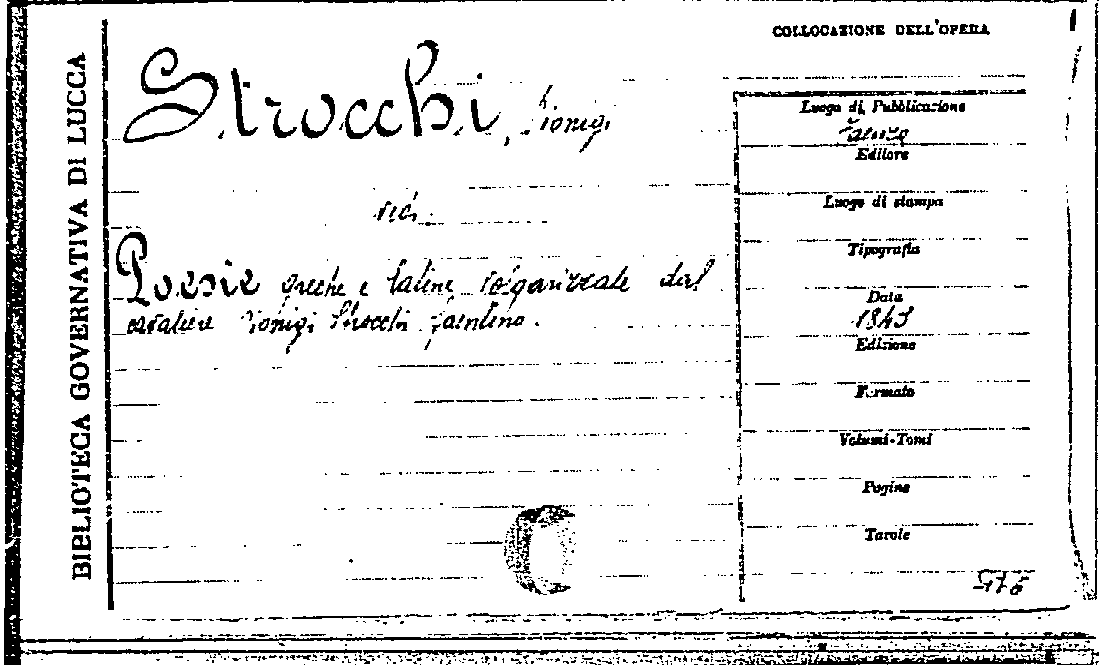 BIBLIOTECA GOVERNATIVA DI LUCCA
COLLOCAZIONE DELL'OPERA
Strocchi, Dionigi
ved.
Poesie greche e latine volgarizzate dal
cavaliere Dionigi Strocchi faentino.
Luogo di Pubblicazione
Faenza
Editore
Luogo di stampa
Tipografia
Data
1843
Edizione
Formato
Volumi-Tomi
Pagine
Tavole